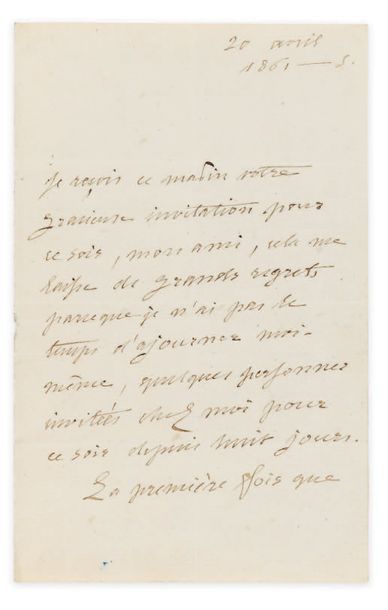 20 avril
1861 — S.
Je reçois ce matin votre
gracieuse invitation pour
ce soir, mon ami, cela me
laisse de grands regrets
parce que je n'ai pas le
temps d'ajourner moi-
même, quelques personnes
invités chez moi pour
ce soir depuis huit jours.
La première fois que